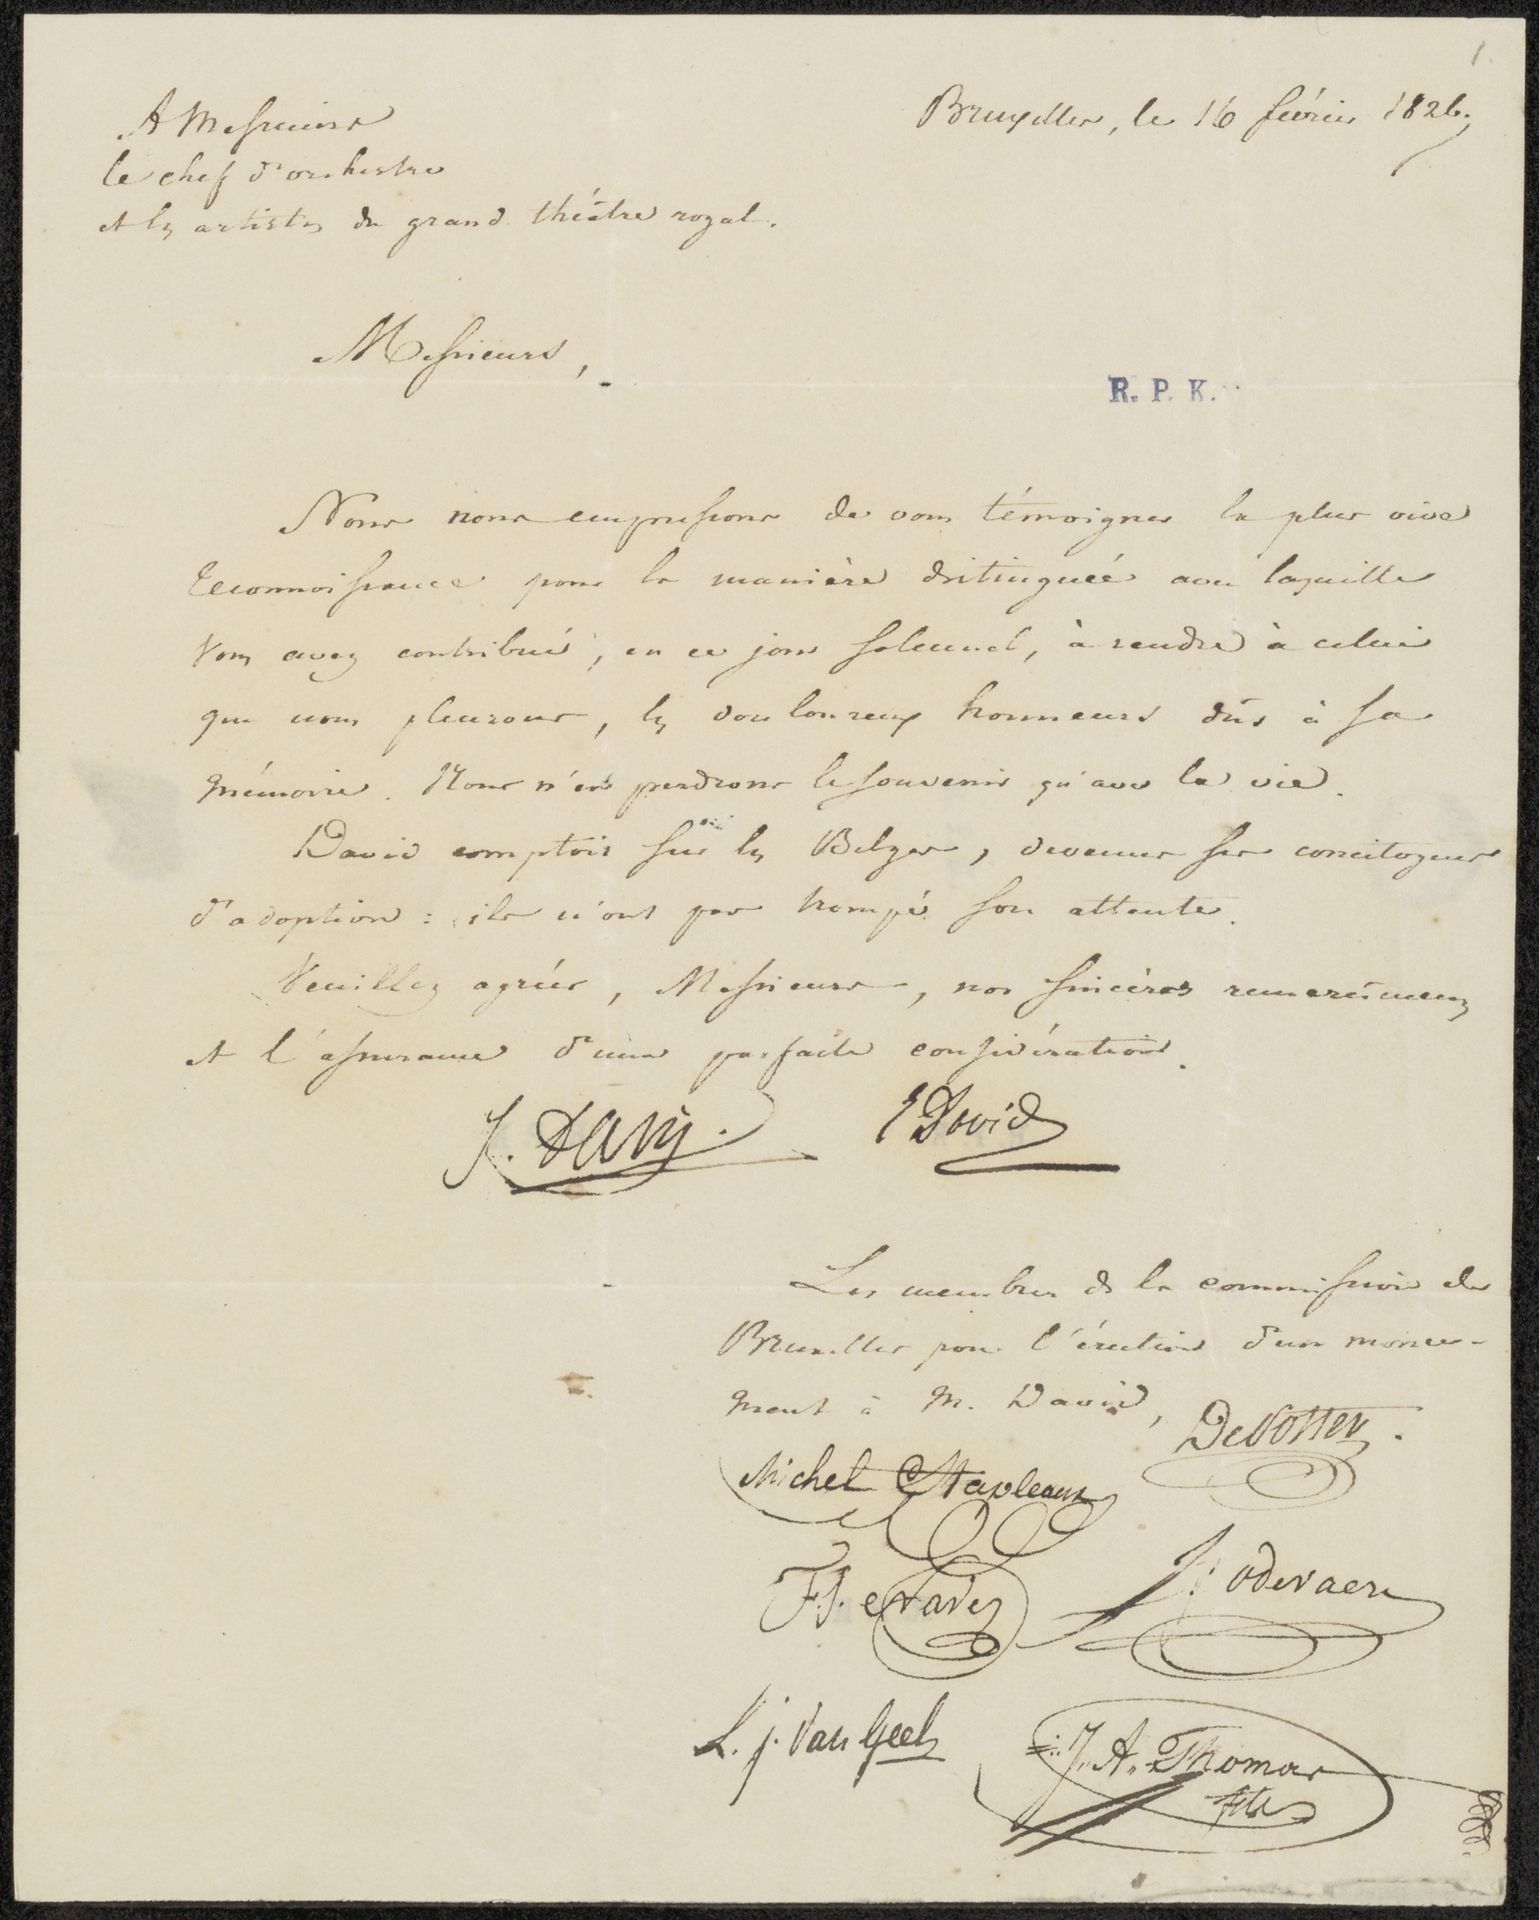 1.
Bruxelles, le 16 février 1826.
A Messieurs
le chef d'orchestre
et les artistes du grand théâtre royal.
Messieurs,
R. P. K.
Nous nous empressons de vous témoigner la plus vive
reconnoissance pour la manière distinguée avec laquelle
vous avez contribué, en ce jour solennel, à rendre à celui
que nous pleurons, les douloureux honneurs dûs à sa
mémoire. Nous n'en perdrons le souvenir qu'avec la vie.
David comptoit sur les Belges, devenus ses concitoyens
d'adoption : ils n'ont pas trompé son attente.
Veuillez agréer, Messieurs, nos sincères remercîmens
et l'assurance d'une parfaite considération.
J. DAvid. E David
Les membres de la commission de
Bruxelles pour l'érection d'un monu-
ment à M. David,
DePotter.
Michel Stapleaux
F. J. Navez
J. Odevaere
L. j. Van Geel
J. A. Thomas
fils